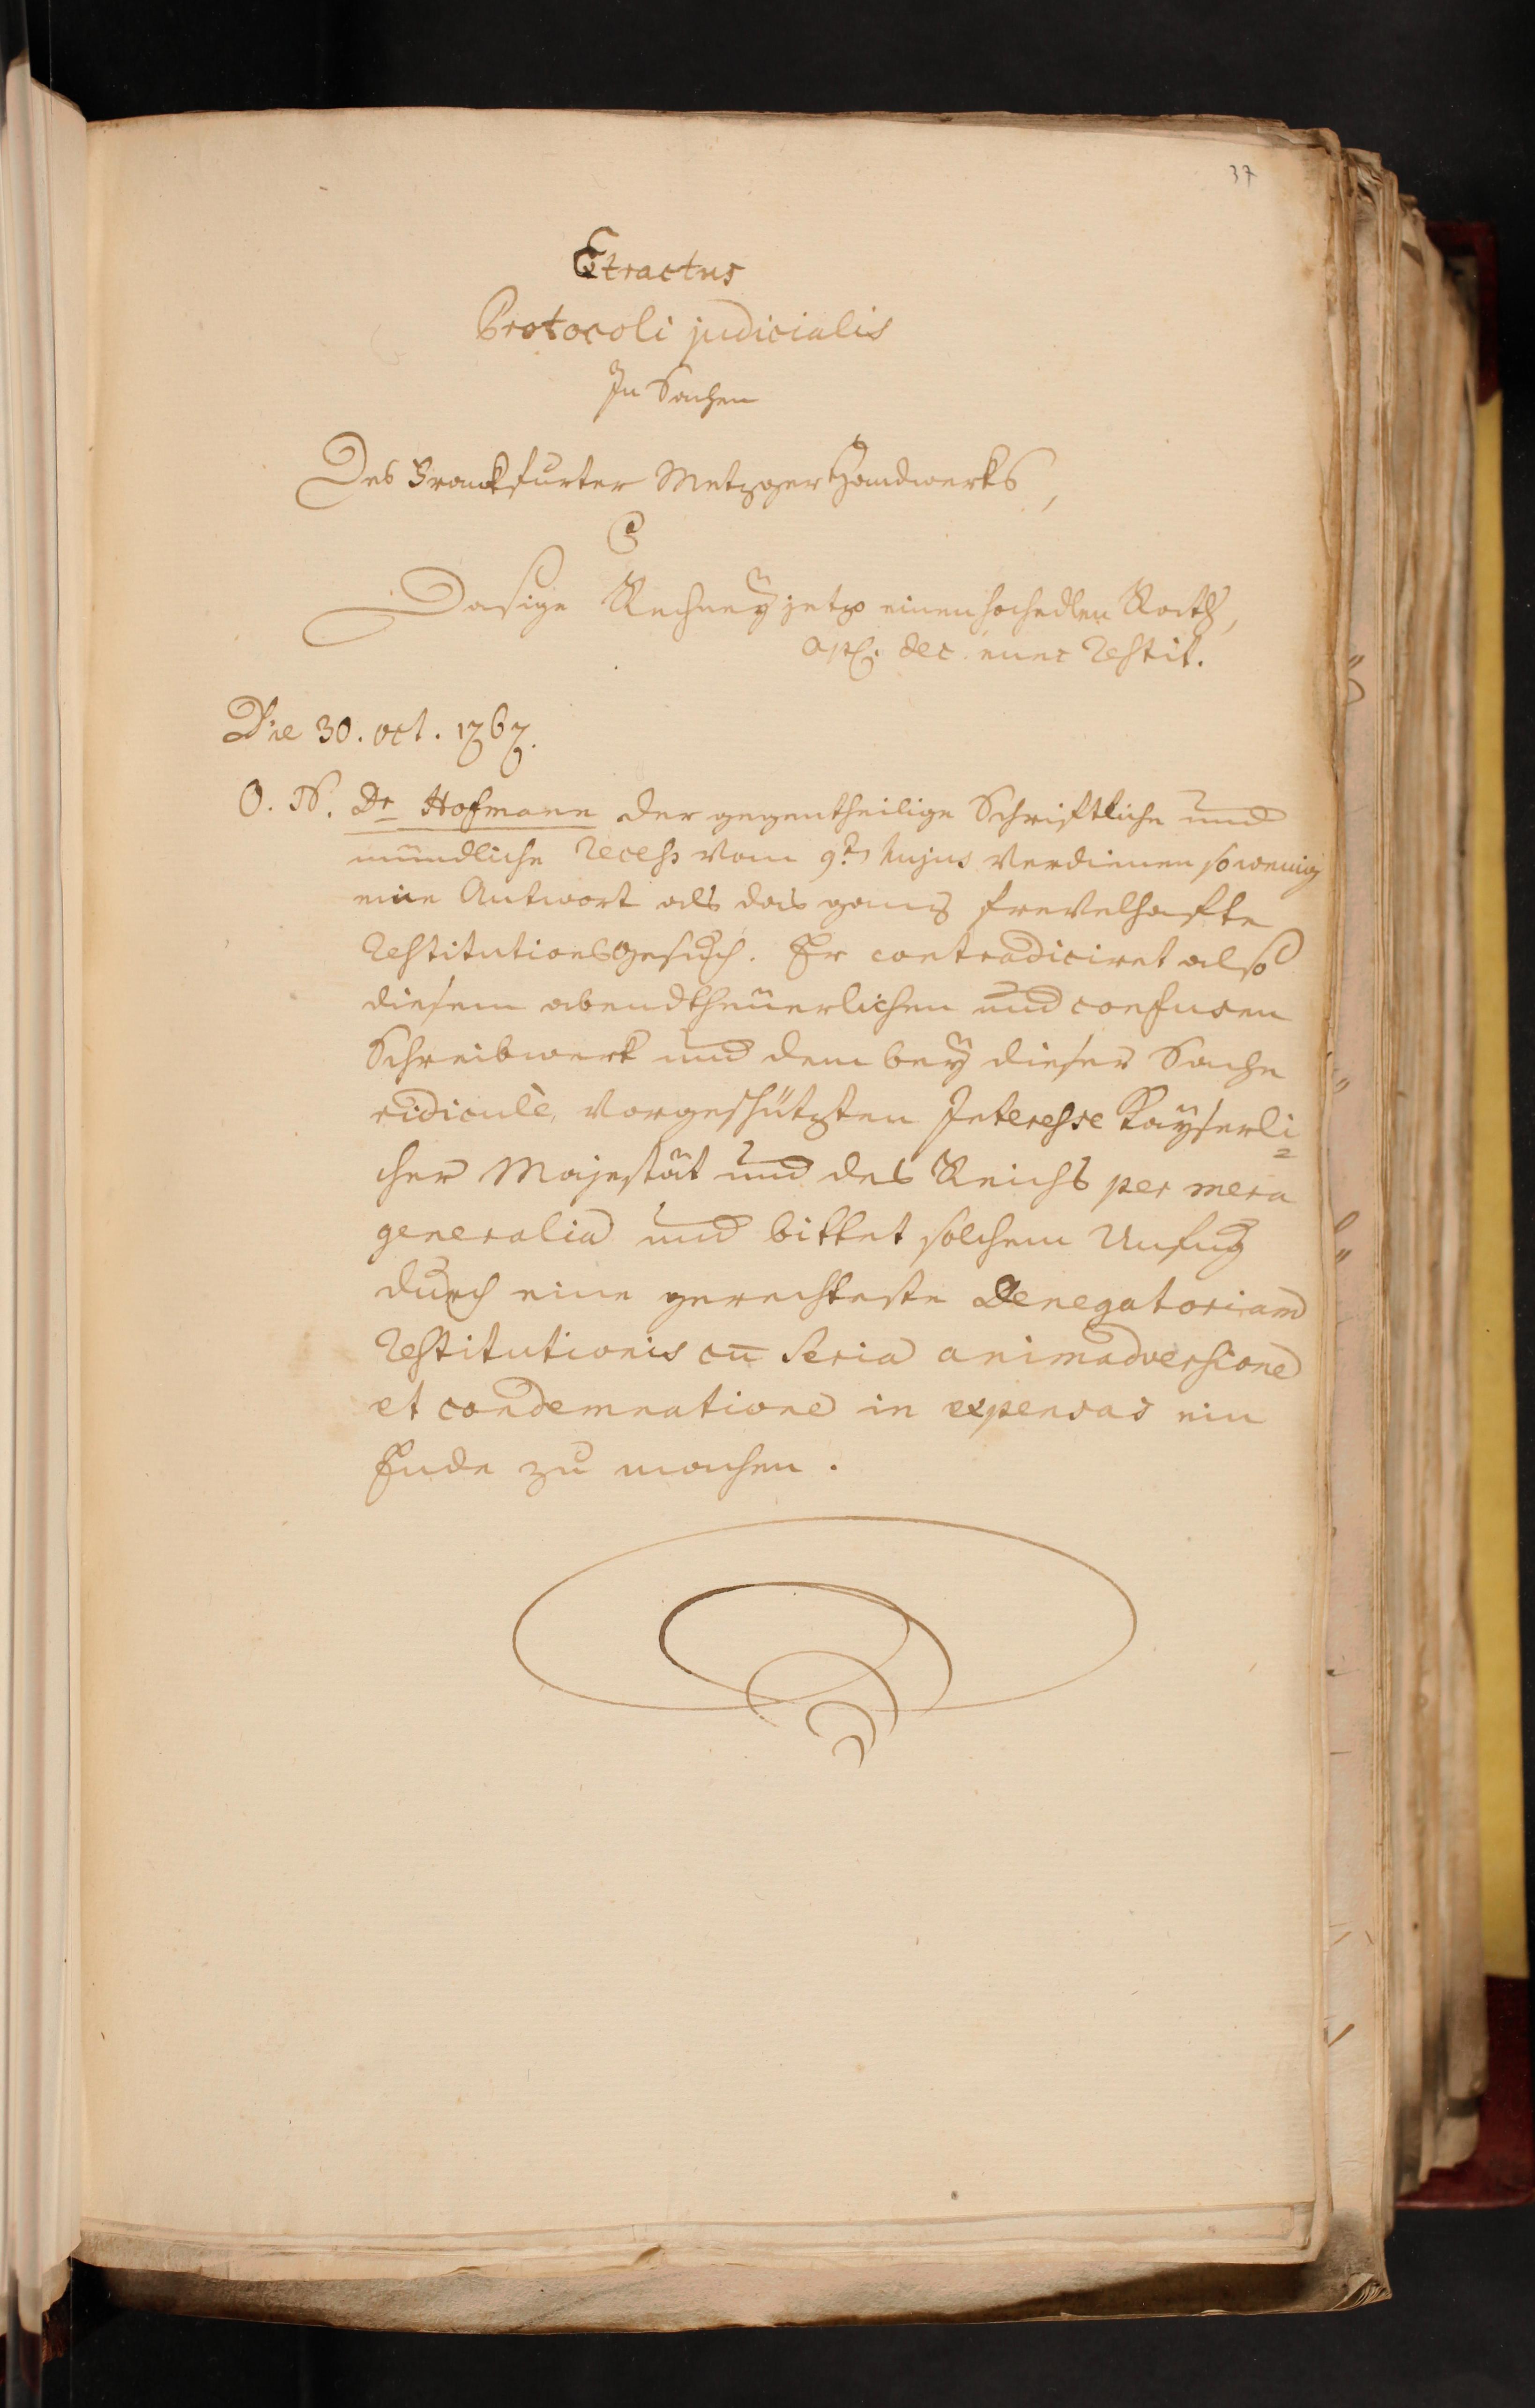 37
Extractus
Protocoli judicialis
In Sachen
Des Franckfurter Metzger Handwerks,
C
Dasige Rechney jetzo einen hochedlen Rath,
App. dec. nunc restit.
Die 30. oct. 1767.
O. N. Dr Hofmann der gegentheilige Schriftliche und
mündliche recess vom 9ten hujus verdienen so wenig
eine Antwort als das ganz frevelhafte
restitutionsgesuch. Er contradiciret also
diesem abendtheuerlichen und confusen
Schreibwerk und dem bey dieser Sache
ridiculè, vorgeschützten Interesse Kayserli=
cher Majestät und des Reichs per mera
generalia und bittet solchem Unfug
durch eine gerechteste Denegatoriam
restitutionis cum seria animadversione
et condemnatione in expensas ein
Ende zu machen.